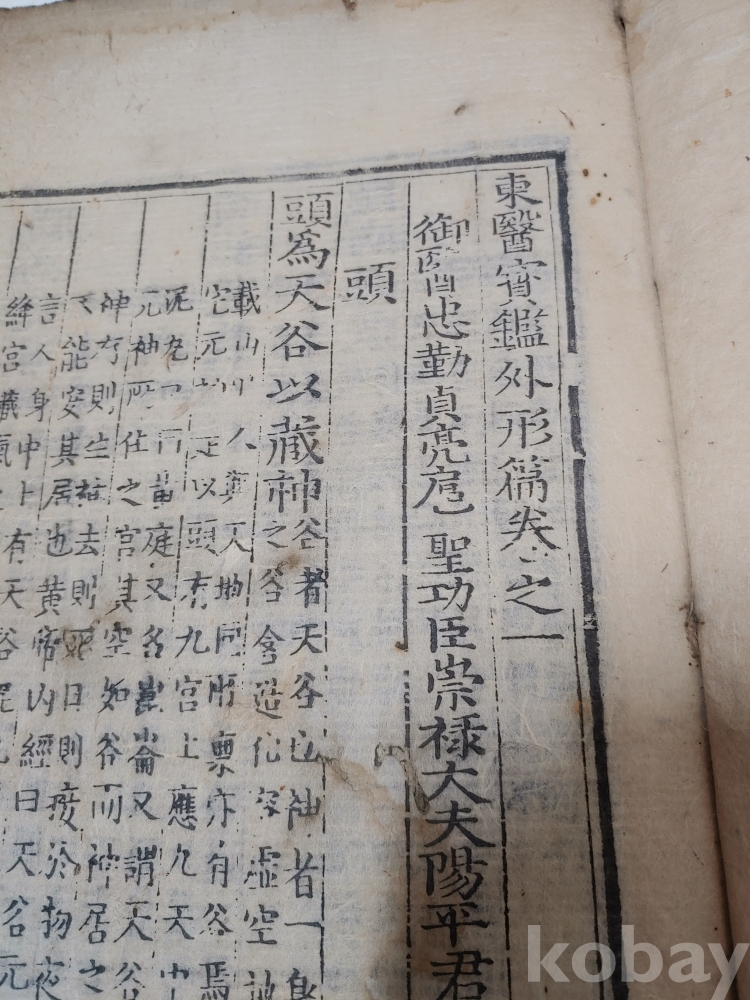 東醫寶鑑外形篇卷之一
御醫忠勤貞亮扈 聖功臣崇祿大夫陽平君
頭
頭爲天谷以藏神
谷者天谷也神者一身
之 谷含造化容虛空
載山川 人與天地同所稟亦有谷焉
空元 是以頭有九宮上應九天中
泥丸 黃庭又名崑崙又謂天谷
元神所住之宮其空如谷而神居之
神存則生神去則死日則接於物夜
不能安其居也黃帝內經曰天谷元
言人身中上有天谷泥
絳宮藏氣
kobay